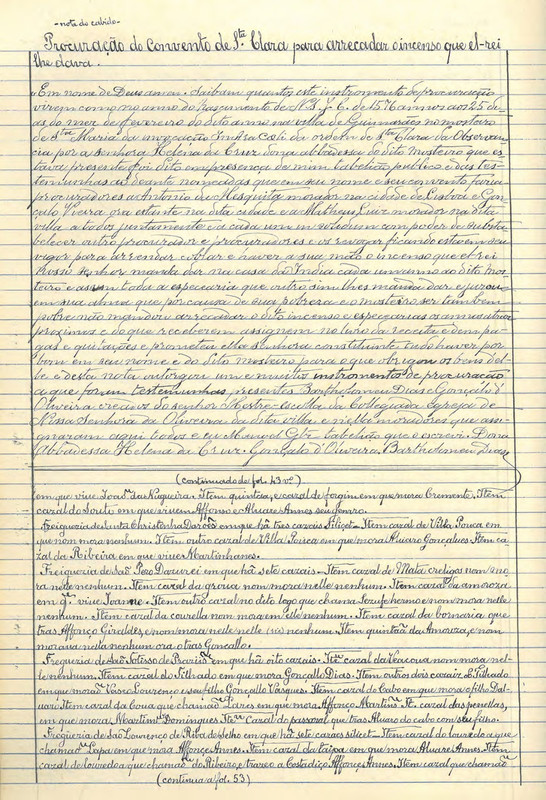 -nota do cabido-
Procuração do Convento de Sta Clara para arrecadar o incenso que el-rei
lhe dava.
Em nome de Deus amen. Saibam quantos este instromento de procuração
virem como no anno do Nascimento de N. S. J. C. de 1576 annos aos 25 di-
as do mez de fevereiro do dito anno na villa de Guimarães no mosteiro
de Sta Maria da invocação da ordem de Sta Clara da Observan-
cia por a senhora Helena da Cruz dona abbadessa do dito mosteiro que es-
tava presente foi dito em presença de mim tabelião publico e das tes-
temunhas ao deante nomeadas que em seu nome e seu convento fazia
procuradores a Antonio de Mesquita morador na cidade de Lisboa e Gon-
çalo Vieira ora estante na dita cidade e a Matheus morador na dita
villa a todos juntamente e a cada um in solidum com poder de substa-
belecer outro procurador e procuradores e os revogar ficando esta em seu
vigor para arrendar cobrar e haver a sua mão o incenso que el rei
nosso senhor manda dar na casa da India cada um anno ao dito mos-
teiro e assim toda a especearia que outro sim lhes manda dar e jurou
em sua alma que por causa de sua pobreza e o mosteiro ser tambem
pobre não mandou arrecadar o dito incenso e especearias os annos atraz
proximos e do que receberem assignem no livro da receita e dem pa-
gas e quitações e prometeu ella senhora constituinte tudo haver por
bom em seu nome e do dito mosteiro para o que obrigou os bens del-
le e desta nota outorgou um e muitos instromentos de procuração
a que foram testemunhas presentes Bartholomeu Dias e Gonçalo d'
Oliveira creados do senhor Mestre-escolla da Collegiada Egreja de
Nossa Senhora da Oliveira da dita villa e nella moradores que assi-
gnaram aqui todos e eu Manuel tabelião que o escrevi. Dona
Abbadessa Helena da Cruz. Gonçalo d'Oliveira. Bartholomeu Dias
(continuado de fol. 43 vº)
em que vive Joam da Nugueira. Item quintãa, e cazal de forgim em que mora Cremento. Item
cazal do Souto em que vivem Affonso e Alvare Annes seu genrro.
Freiguezia de Santa Christinha em que há tres cazais silizet - Item cazal de Villa Pouca em
que nom mora nenhum. Item outro cazal de Villa Pouca em que mora Alvaro Gonçalves. Item ca-
zal da Ribeira em que vive Martinhanes.
Freiguezia de Saõ em que há sete cazais. Item cazal de Mata cre nom mo-
ra neste nenhum. Item cazal da grova nom mora nelle nenhum. Item cazal da amoroza
em q. vive Joanne. Item outro cazal no dito logo que chama e nom mora nelle
nenhum. Item cazal da courella nom mora em elle nenhum. Item cazal da
tras Affonço Giraldes, e nom mora nelle nelle (sic) nenhum. Item quintãa da Amoroza, e nom
mora em nella nenhum ora o tras Gonçallo.
Freguezia de São em que há oito cazais. Item cazal da nom mora nel-
le nenhum. Item cazal do Silhado em que mora Gonçallo Dias. Item outros dois cazais do Silhado
em que mora Vasco Lourenço e seu filho Gonçallo Vasques. Item cazal do Cabo em que mora o filho D'Al-
varo. Item cazal da Cova que chamão em que mora Affonço Martins. It. cazal das penellas,
em que mora Martim Domingues. Item Cazal do passoral que tras Alvaro do cabo com seu filho.
Freiguezia de São Lourenço de Riba de Selho em que há sete cazais silicet - Item cazal do louredo a que
chamão Lapa em que mora Affonçe Annes. Item cazal da em que mora Alvare Annes. Item
cazal de louredo a que chamão do Ribeiro, e trazeo a Affonçe Annes. Item cazal que chamão
(continua a fol. 53)